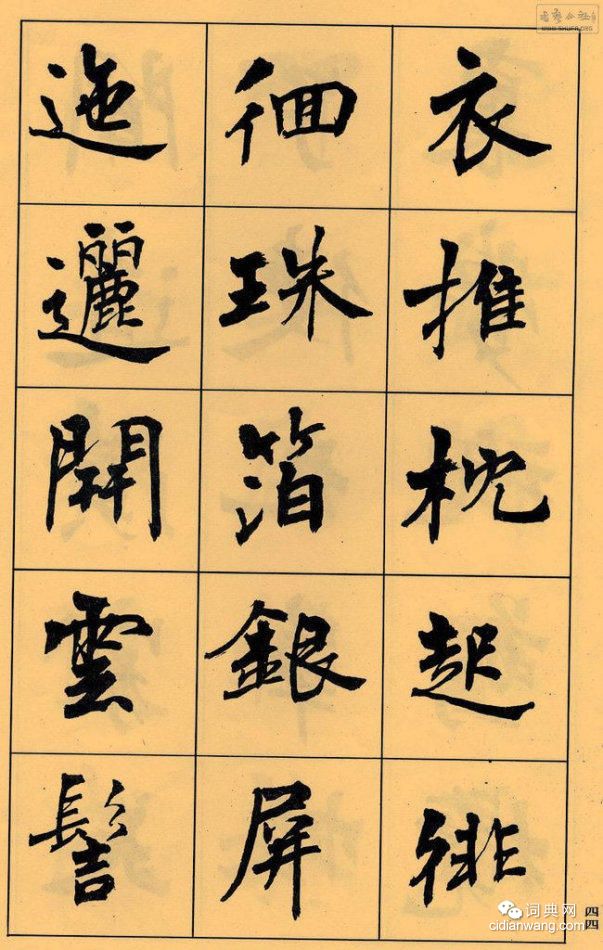 衣推枕起徘
徊珠箔銀屏
迤邐開雲髻
四四
词典网
cidianwang.com
WWW.SHUFA.ORG